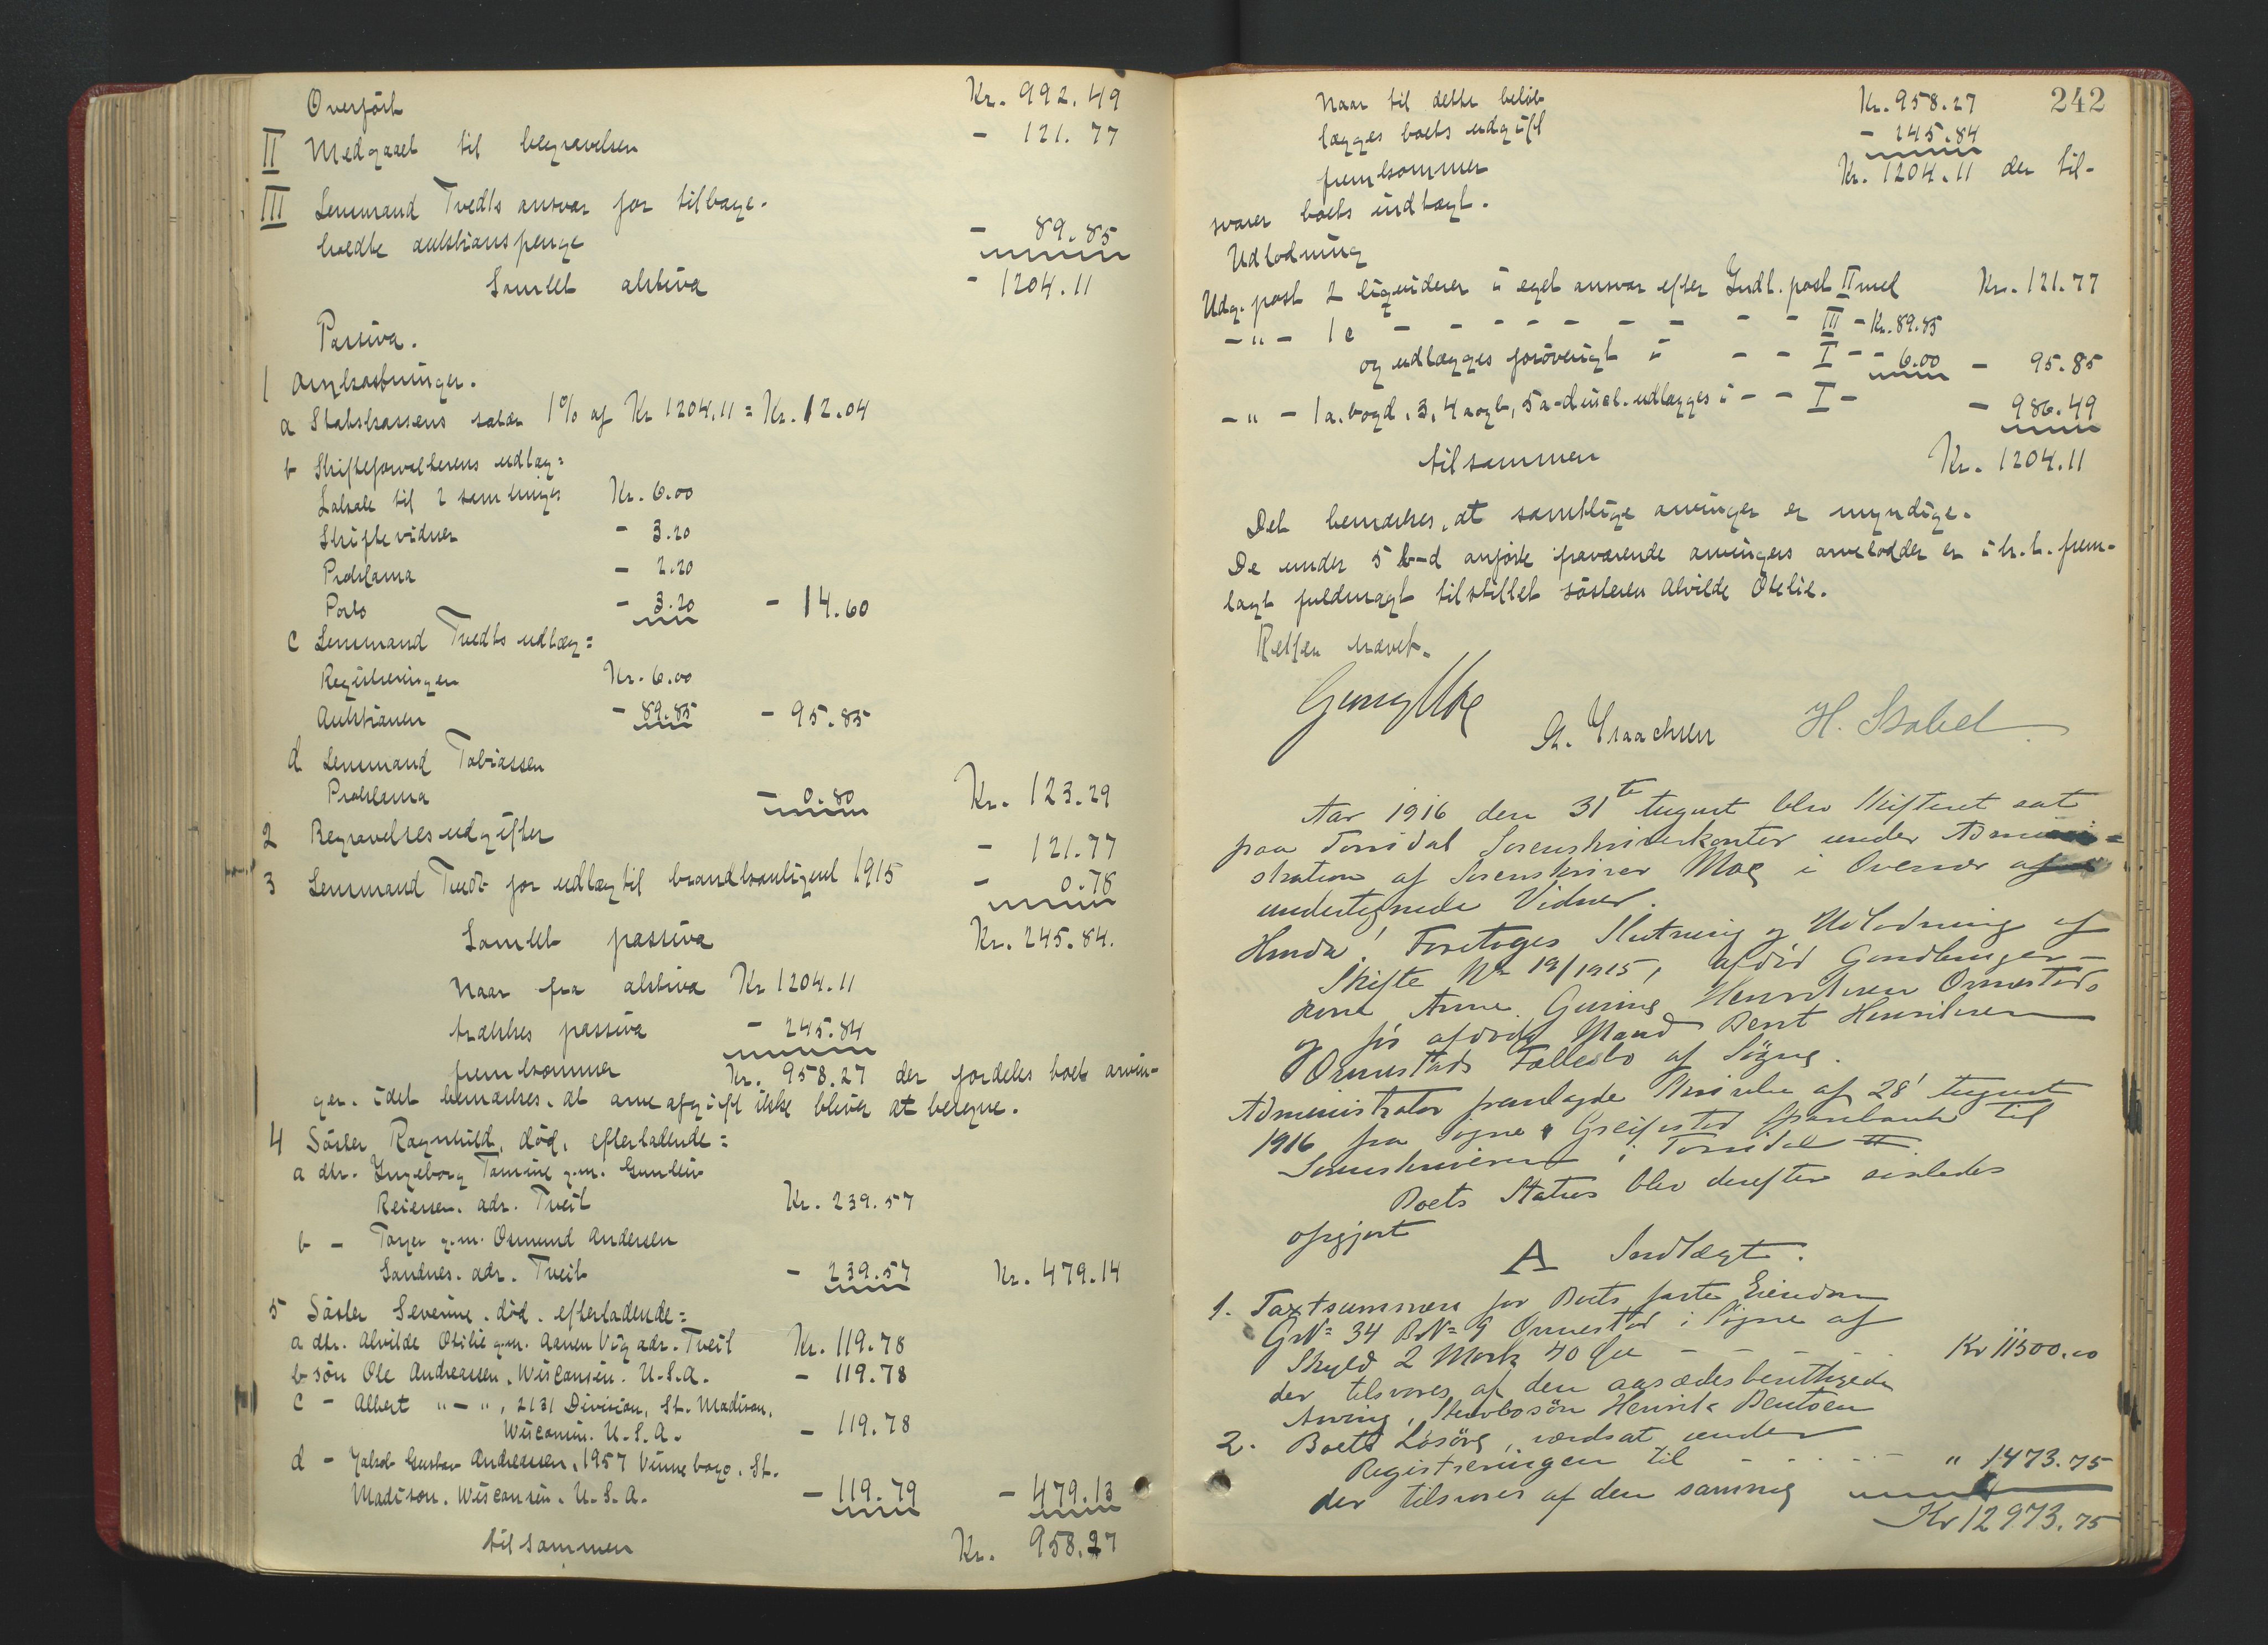 Overført Kr. 992.49
II Medgaaet til begravelsen - 121.77
III Lensmand Tvedts ansvar for tilbage-
holdte auktionspenge - 89.85
Samlet aktiva - 1204.11
Passiva.
1 Omkostninger.
a Statskassens salær 1% af Kr 1204.11 = Kr. 12.04
b Skifteforvalterens udlæg:
Lokale til 2 samlinger Kr. 6.00
Skiftevidner - 3.20
Proklama - 2.20
Porto - 3.20 - 14.60
c Lensmand Tvedts udlæg:
Registreringen Kr. 6.00
Auktionen - 89.85 - 95.85
d Lensmand Tobiassen
Proklama - 0.80 Kr. 123.29
2 Begravelsesudgifter - 121.77
3 Lensmand Tvedt for udlæg til brandkontigent 1915 - 0.78
Samlet passiva Kr. 245.84.
Naar fra aktiva Kr 1204.11
trækkes passiva - 245.84
fremkommer Kr. 958.27 der fordeles boets arvin-
ger. idet bemærkes, at arveafgift ikke bliver at beregne.
4 Søster Ragnhild, død, efterladende:
a dtr. Ingeborg Tomine g.m. Gunleiv
Reiersen. adr. Tveit Kr. 239.57
b - Torjer g.m. Osmund Andersen
Sandnes. adr. Tveit - 239.57 Kr. 479.14
5 Søster Severine. død. efterladende:
a dtr. Alvilde Otilie g.m. Aanen Vig adr. Tveit Kr. 119.78
b søn Ole Andreassen, Wisconsin. U.S.A. - 119.78
c - Albert " - ", 2131 Division, St. Madison,
Wisconsin. U.S.A. - 119.78
d - Jakob Gustav Andreassen, 1957 Vinnebago. St.
Madison. Wisconsin. U.S.A. - 119.79 - 479.13
tilsammen Kr. 958.27
242
Naar til dette beløb Kr. 958.27
lægges boets udgift - 245.84
fremkommer Kr. 1204.11 der til-
svarer boets indtægt.
Udlodning
Udg. post 2 ligviderer i eget ansvar efter Indt. post II med Kr. 121.77
- " - 1 c - - - - - - - - - III - Kr. 89.85
og udlægges forøvrigt i - - I - - 6.00 - 95.85
- " - 1 a. b og d. 3, 4 a og b, 5 a-d incl. udlægges i - - I - - 986.49
tilsammen Kr. 1204.11
Det bemærkes, at samtlige arvinger er myndige.
De under 5 b-d anførte fraværende arvingers arvelodder er i h.t. frem-
lagt fuldmagt tilstillet søsteren Alvilde Otilie.
Retten hævet.
Georg Moe
St. Isaachsen H. Stabel
Aar 1916 den 31te August blev Skifteret sat
paa Torridal Sorenskriverkontor under Admini-
stration af Sorenskriver Moe i Overvær af
undertegnede Vidner.
Hvorda! Foretoges Slutning og Udlodning af
Skifte No 19/1915, afdød Gaardbruger-
kone Anne Gurine Henriksen Ormestads
og før afdøde Mand Bent Henriksen
Ormestads Fællesbo af Søgne.
Administrator fremlagde Skrivelse af 28' August
1916 fra Søgne & Greipstad Sparebank til
Sorenskriveren i Torridal.
Boets Status blev derefter saaledes
opgjort
A Indtægt.
1. Taxtsummen for Boets faste Eiendom
GNo 34 BNo 9 Ormestad i Søgne af
Skyld 2 Mark 40 Øre - - - - Kr 11500.00
der tilsvares af den aasædesberettigede
Arving, Stervbosøn Henrik Bentsen
2. Boets Løsøre, værdsat under
Registreringen til - - - - " 1473.75
der tilsvares af den samme
Kr 12973.75